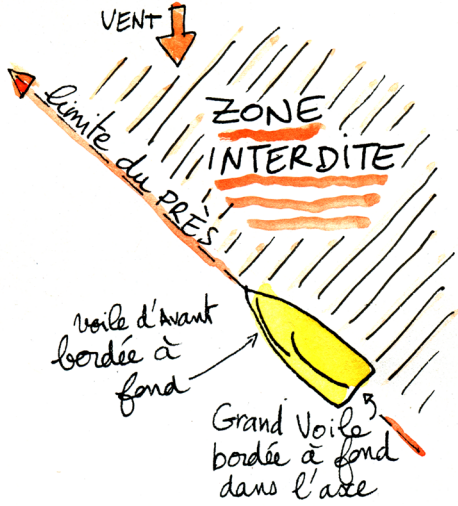 VENT
ZONE
INTERDITE
limite du PRÈS
voile d'Avant
bordée à
fond
Grand Voile
bordée à fond
dans l'axe